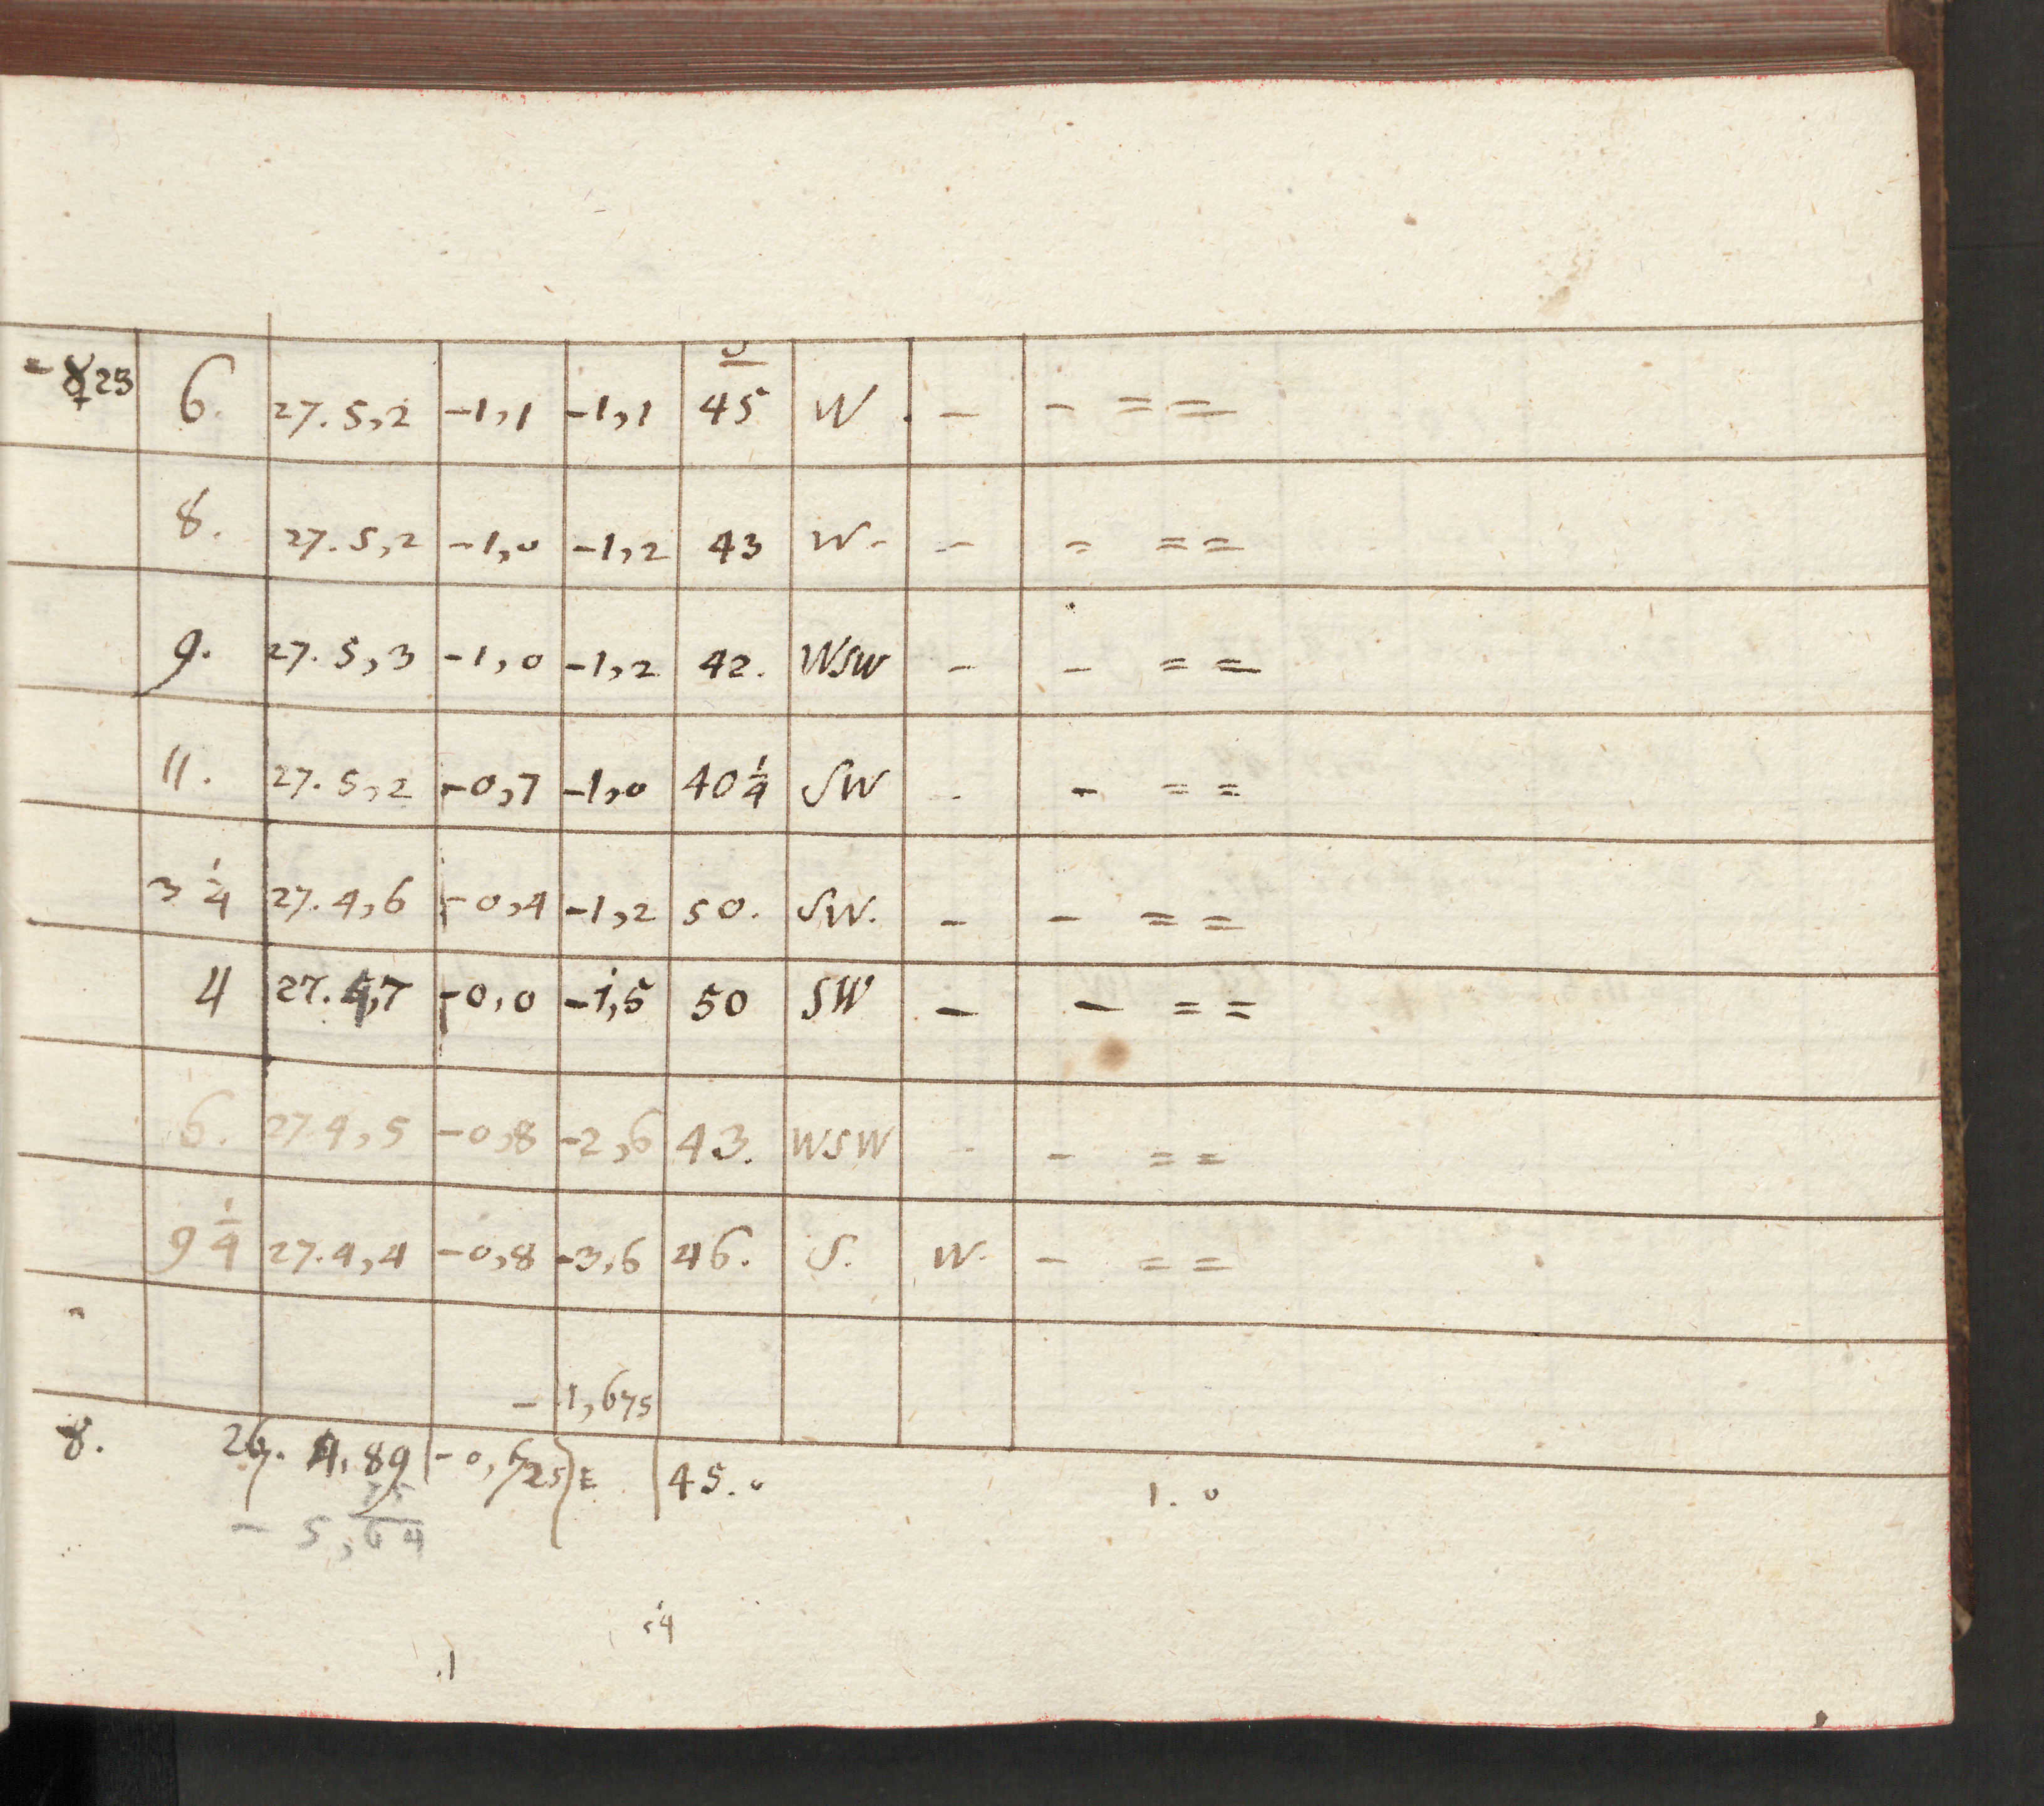 - ☿ 23 6. 27.5,2 -1,1 -1,1 45 W. - - = =
8. 27.5,2 -1,0 -1,2 43 W. - = = =
9. 27.5,3 -1,0 -1,2 42. WSW - - = =
11. 27.5,2 -0,7 -1,0 40 1/4 SW - - = =
3 1/4 27.4,6 -0,4 -1,2 50. SW. - - = =
4 27.4,7 -0,0 -1,5 50 SW - - = =
6. 27.4,5 -0,8 -2,6 43. WSW - - = =
9 1/4 27.4,4 -0,8 -3,6 46. S. W. - = =
- 1,675
8. 4,89 -0, 45.0 1.0
- 5,64